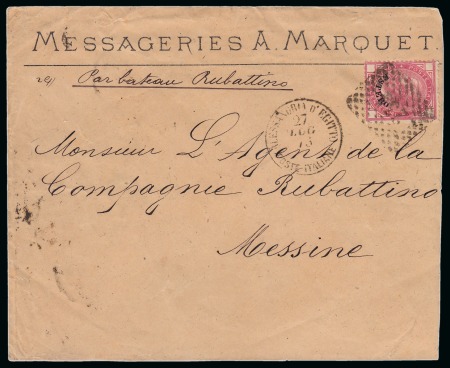 MESSAGERIES A. MARQUET.
Par bateau Rubattino
ALESSANDRIA D'EGITTO
27
LUG
73
POSTE ITALIANE
Monsieur L'Agen de la
Compagnie Rubattino
Messine